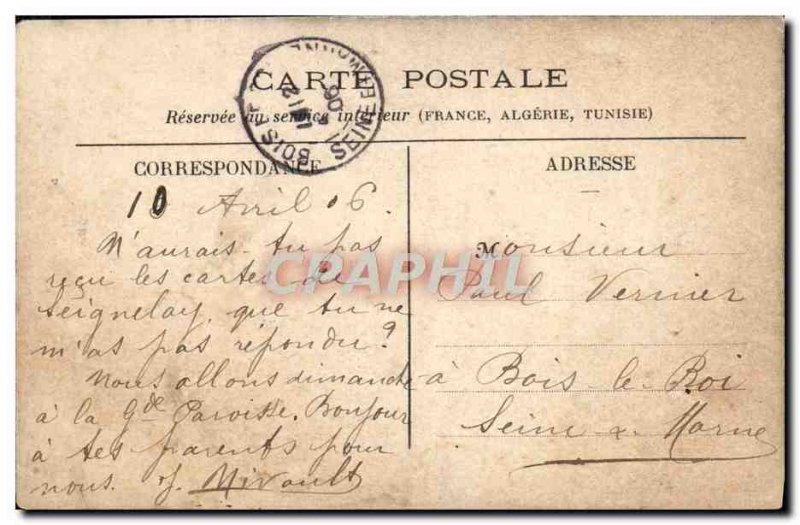 CARTE POSTALE
Réservée au service intérieur (FRANCE, ALGÉRIE, TUNISIE)
BOIS SEINE ET MARNE
12
06
CORRESPONDANCE
10 Avril 06.
N'aurais-tu pas
reçu les cartes de
Seignelay, que tu ne
m'as pas répondu?
Nous allons dimanche
à la Gde Paroisse. Bonjour
à tes parents pour
nous.
ADRESSE
Monsieur
Paul Vernier
à Bois-le-Roi
Seine & Marne
CPAPHIL